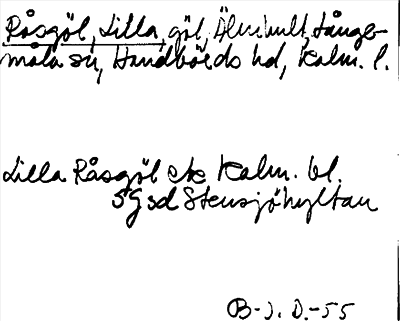 Råsgöl, Lilla, göl, Älmhult, Långe-
måla sn, Handbörds hd, Kalm. l.
Lilla Råsgöl ek Kalm. bl.
5g sd Stensjöhyltan
B-J. D.-55